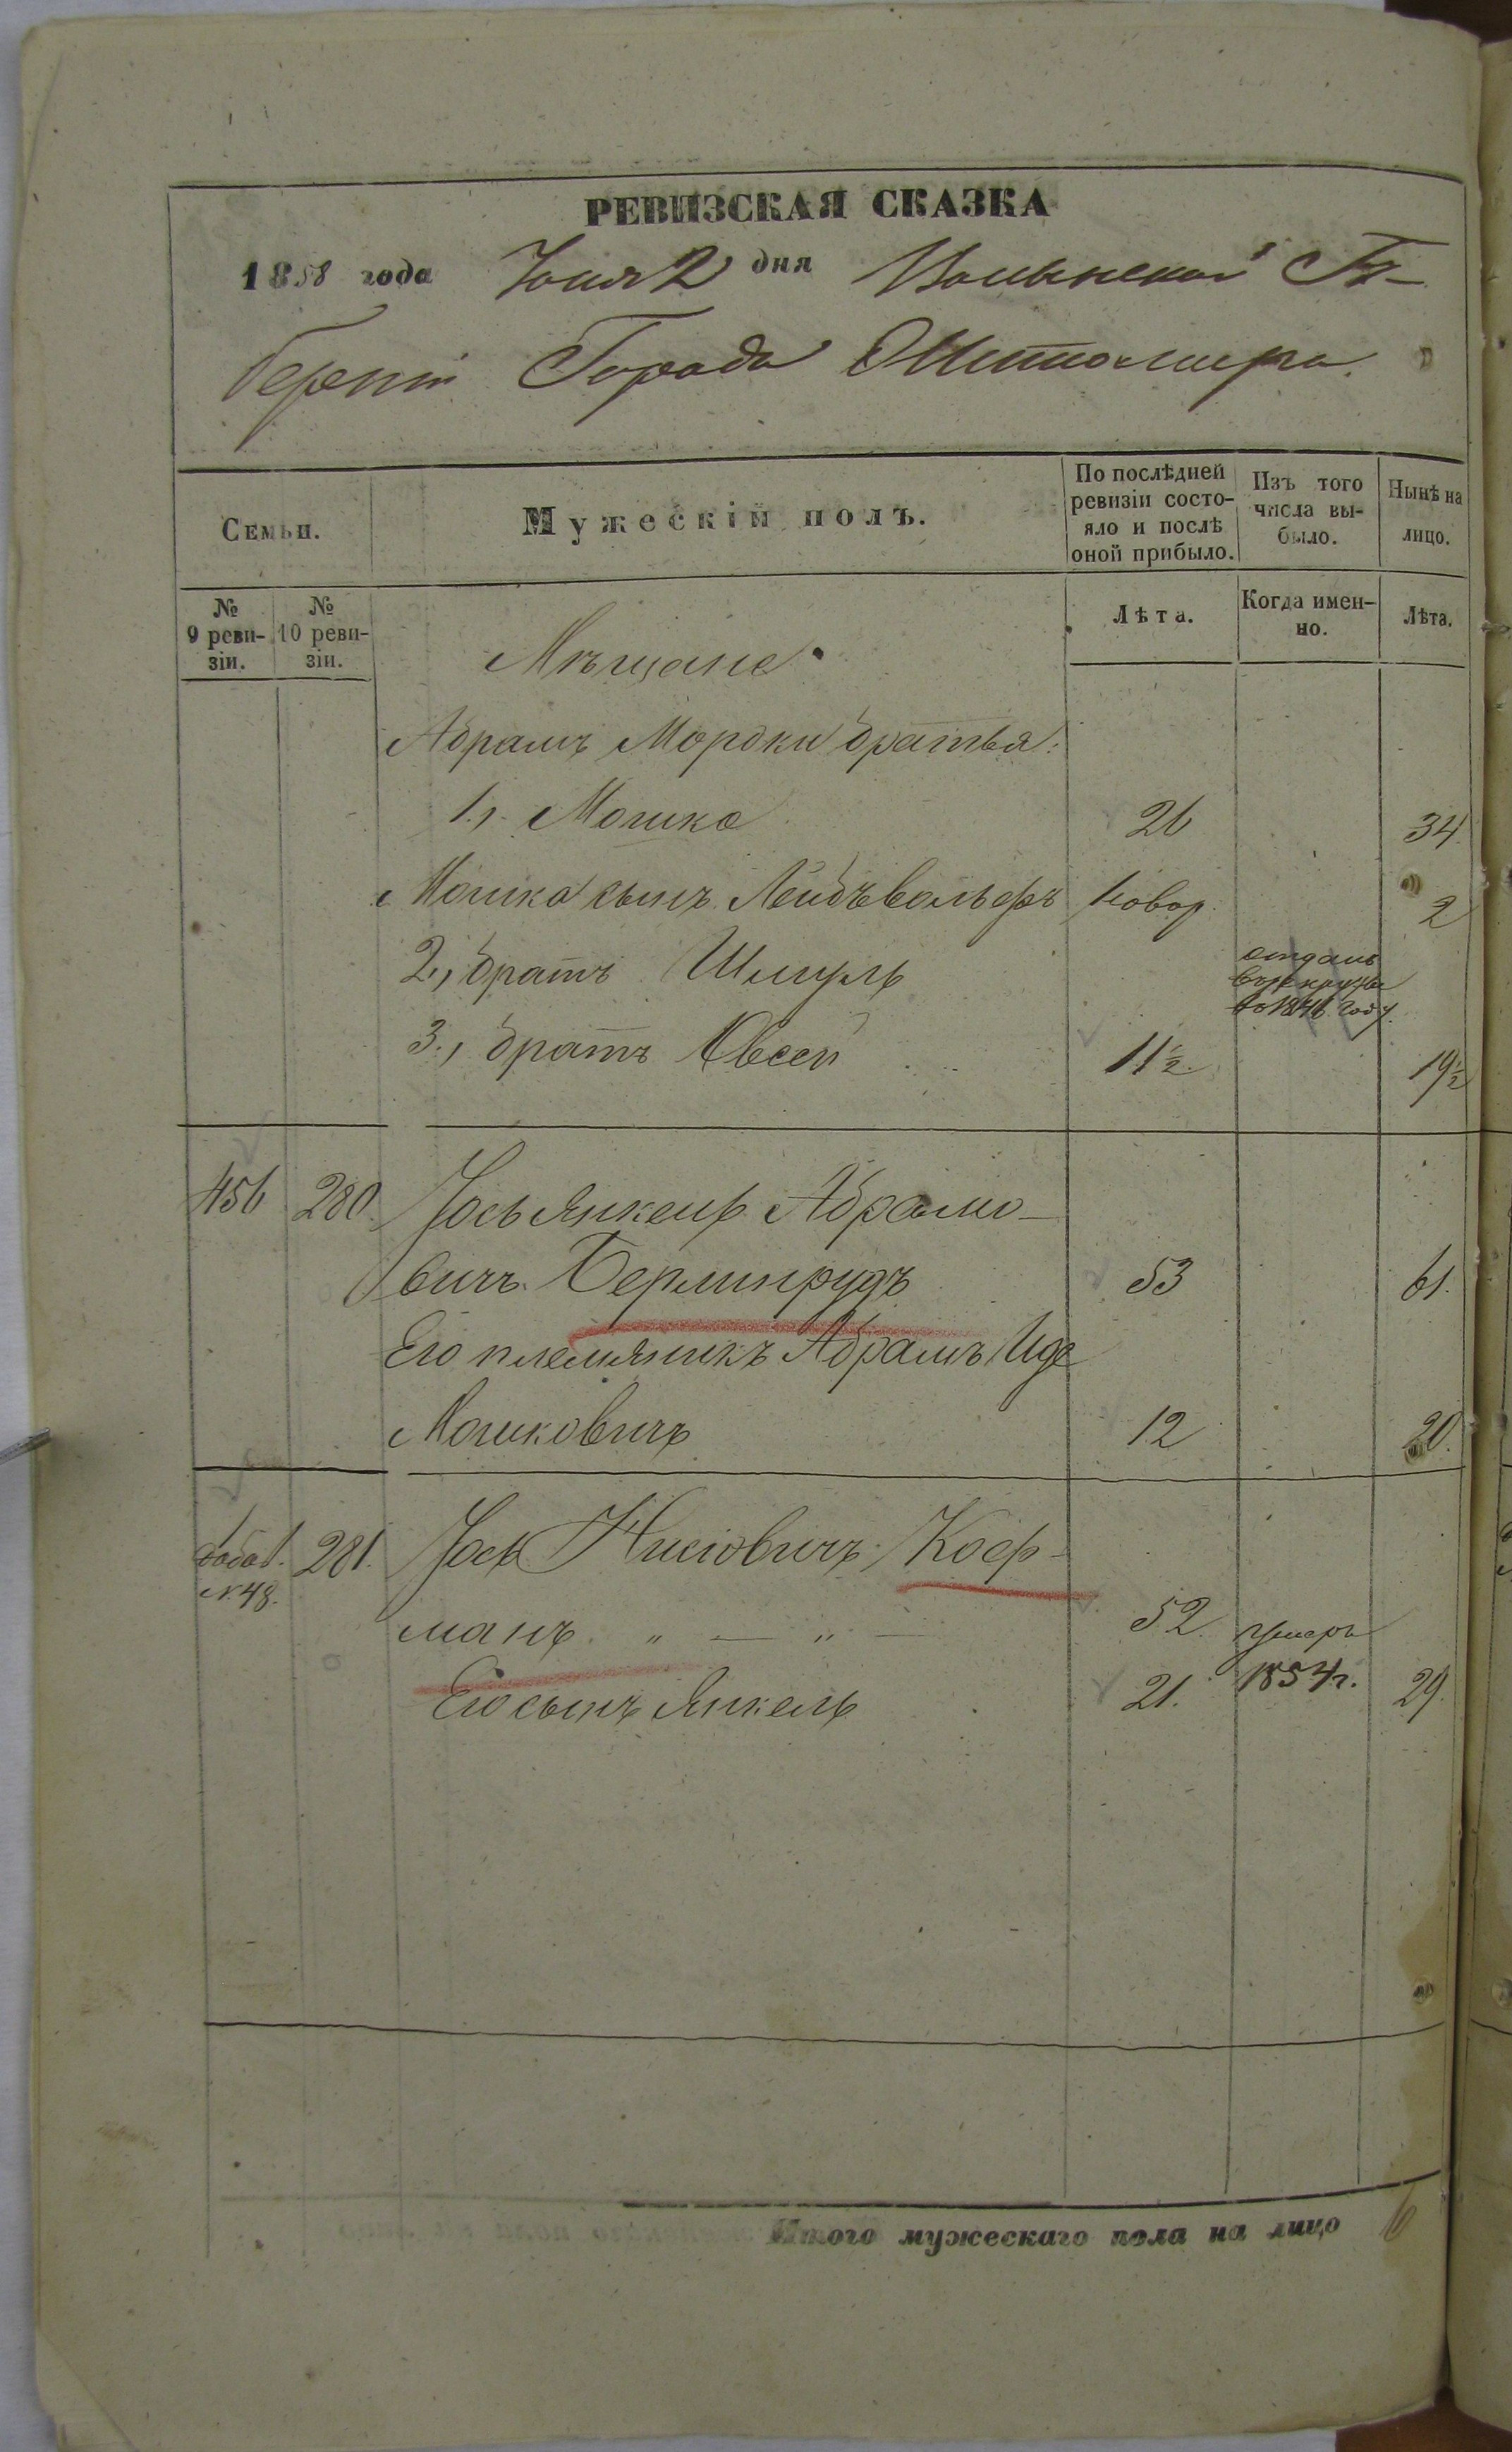 РЕВИЗСКАЯ СКАЗКА
1858 года Іюня 2 дня Волынской Гу-
берніи Города Житомира.
Семьи.
Мужескій полъ.
По послѣдней ревизіи состо-яло и послѣ оной прибыло.
Изъ того числа вы-было.
Нынѣ на лицо.
№ 9 реви-зіи.
№ 10 реви-зіи.
Лѣта.
Когда имен-но.
Лѣта.
Мѣщане
Абрамъ Мордки братья:
1., Мошко 26 34
Мошка сынъ Лейбъвольфъ новор. 2
2, братъ Шмуль отданъ въ рекруты въ 1848 году.
3., братъ Овсей 11½ 19½
456 280. Іось Янкель Абрамо-
вичъ Берлинрудъ 53 61.
Его племяникъ Абрамъ Иде
Мошковичъ 12 20.
добав. №48. 281. Іось Нисіовичъ Коф-
манъ " — " — 52. умеръ 1854г.
Его сынъ Янкель 21. 29.
Итого мужескаго пола на лицо 6